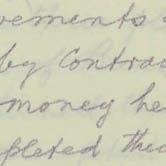 vements
by contrac
money he
pleted this